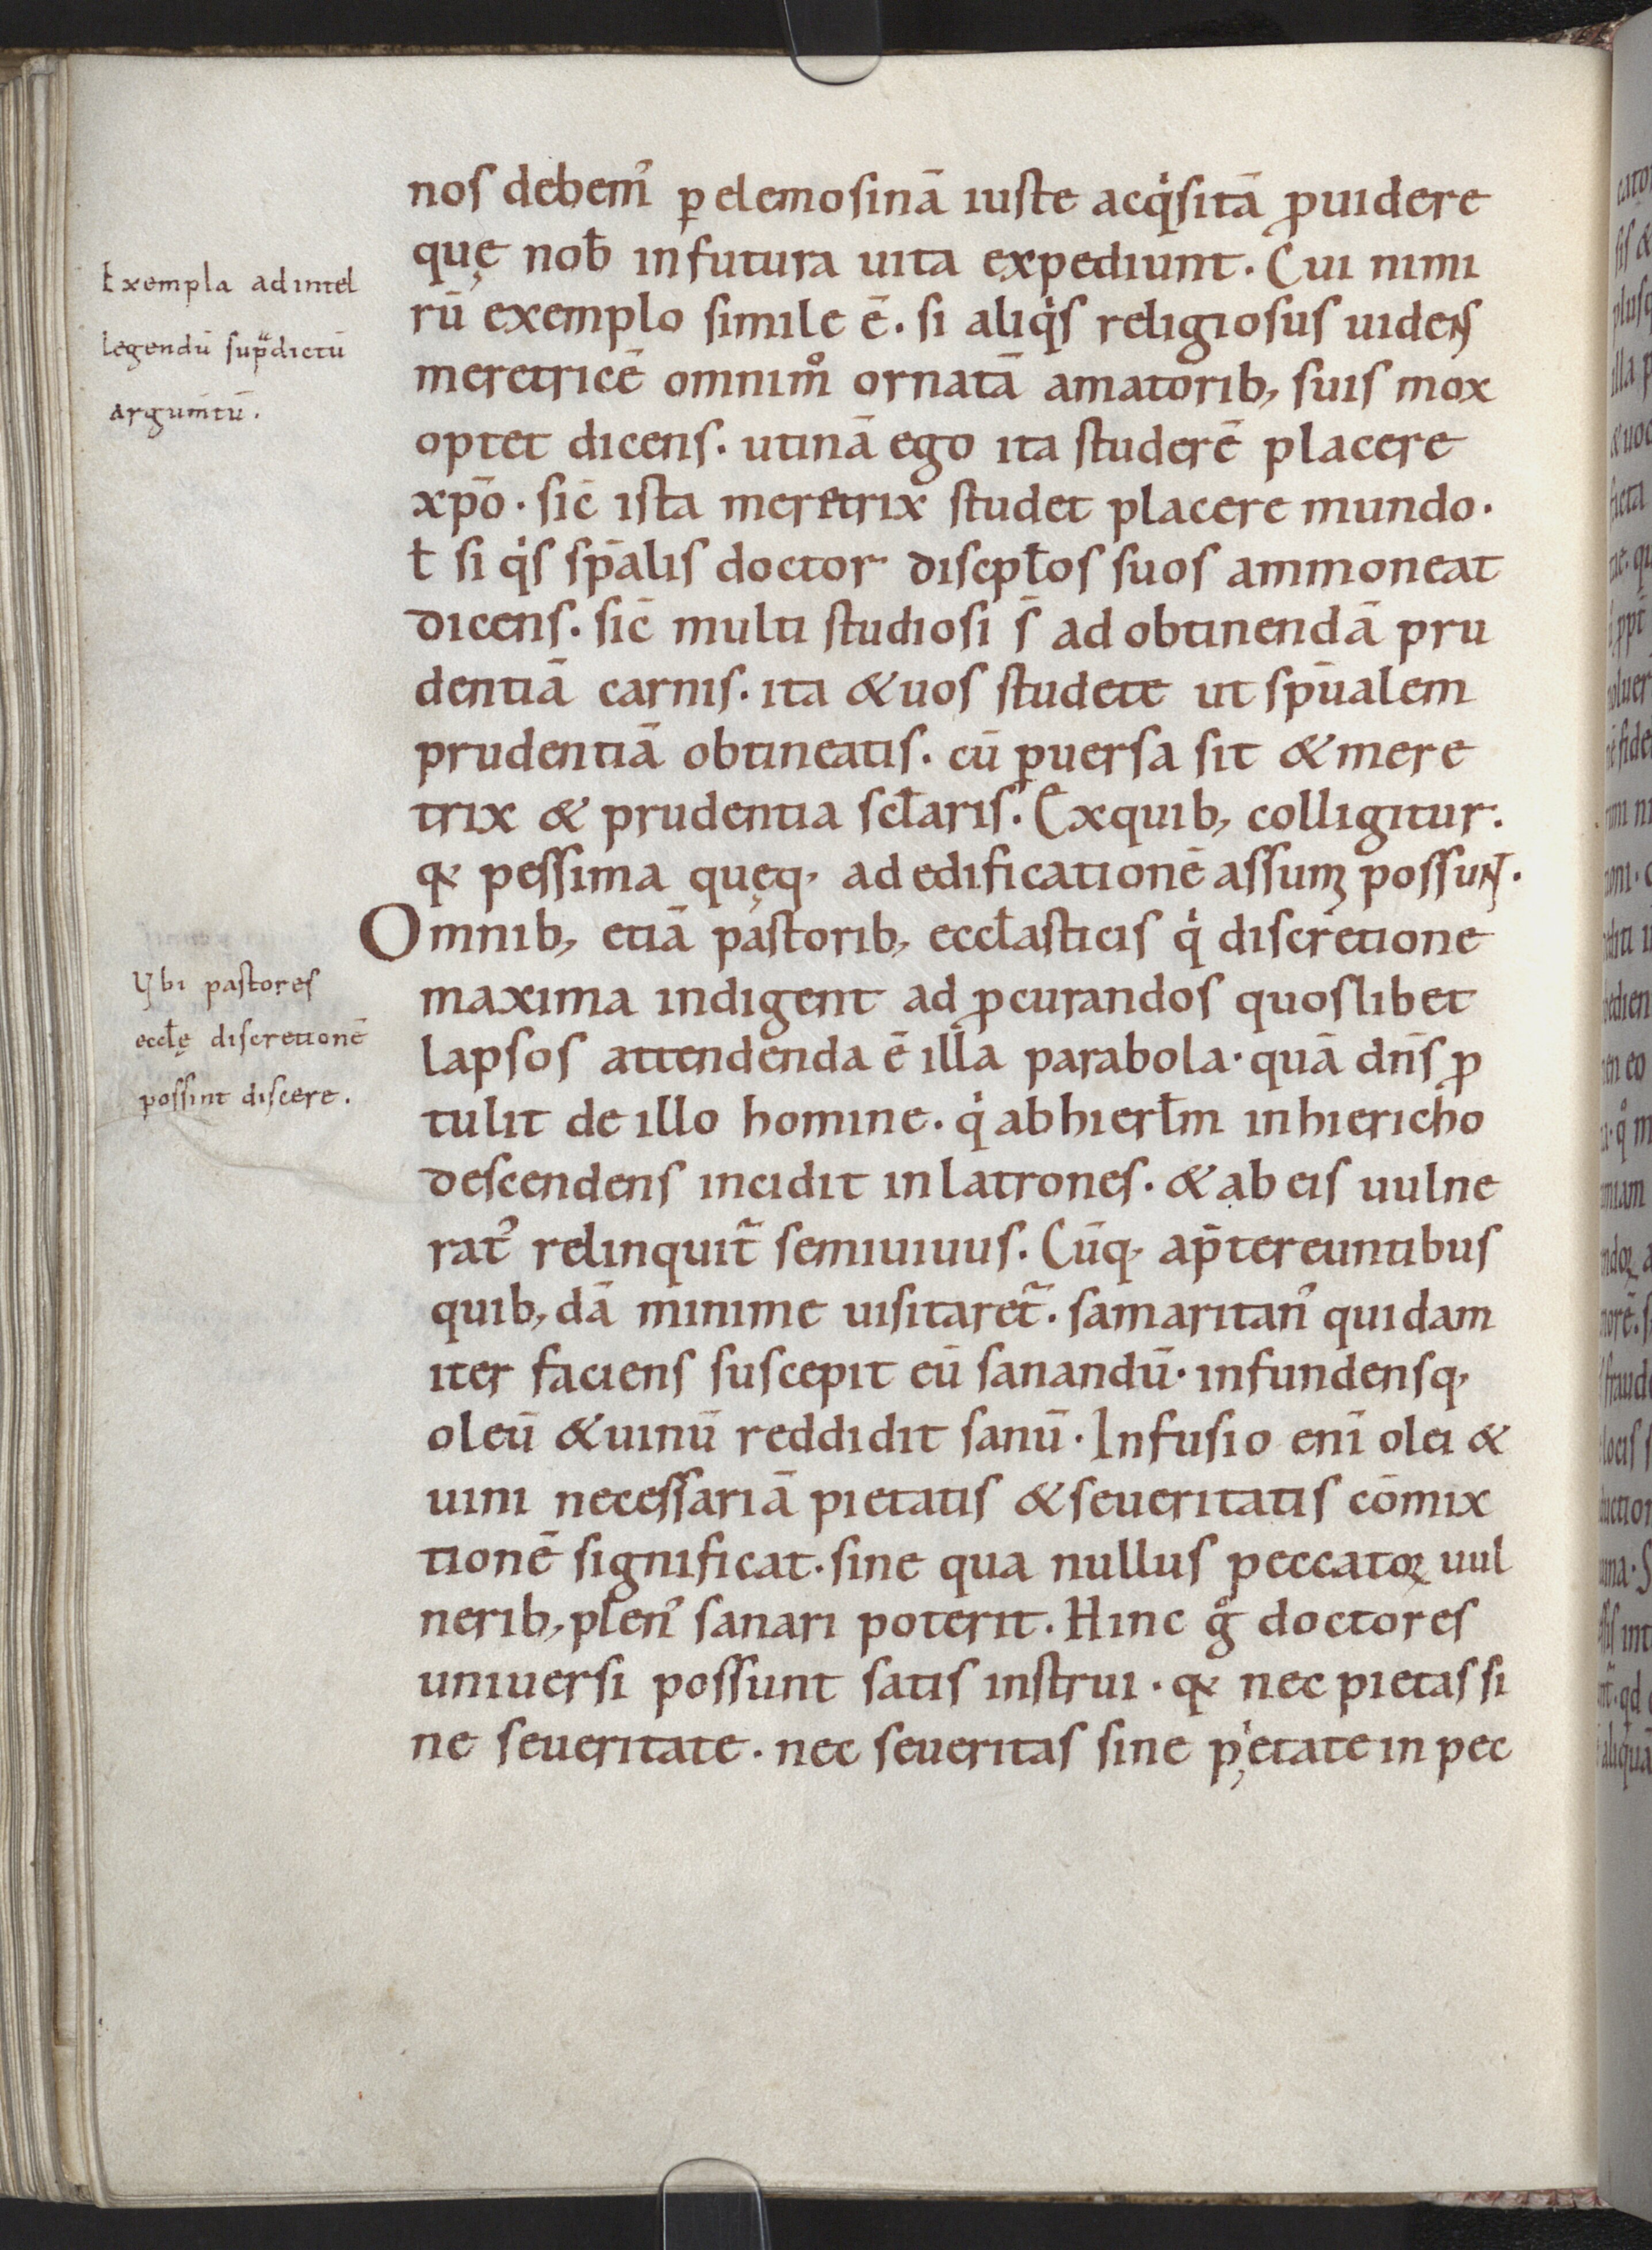 Exempla ad intel
legendū sup̄dictū
argum̄tū.
Ubi pastores
eccl̄ę discretionē
possint discere.
nos debem᾿ ꝑ elemosinā iuste acq̇sitā ꝓuidere
quę nob̄ in futura uita expediunt. Cui nimi
rū exemplo simile ē. si aliq̇s religiosus uidens
meretricē omnim̊ ornatā amatorib; suis mox
optet dicens. utinā ego ita studerē placere
xp̄o. sic̄ ista meretrix studet placere mundo.
ł si q̇s sp̄alis doctor discipl̄os suos ammoneat
dicens. sic̄ multi studiosi s̄ ad obtinendā pru
dentiā carnis. ita & uos studete ut sp̄ualem
prudentiā obtineatis. cū ꝑuersa sit & mere
trix & prudentia scl̄aris. Ex quib; colligitur.
qđ pessima quęq; ad edificationē assumi possunt.
Omnib; etiā pastorib; eccl̄asticis q̇ discretione
maxima indigent ad ꝓcurandos quoslibet
lapsos attendenda ē illa parabola. quā dn̄s ꝓ
tulit de illo homine. q̇ ab hierl̄m in hiericho
descendens incidit in latrones. & ab eis uulne
rat᾿ relinquit̃ semiuiuus. Cūq; a p̄tereuntibus
quib;dā minime uisitaret̃. samaritan᾿ quidam
iter faciens suscepit eū sanandū. infundensq;
oleū & uinū reddidit sanū. Infusio eni̅ olei &
uini necessariā pietatis & seueritatis cōmix
tionē significat. sine qua nullus peccatoꝝ uul
nerib; plen᾿ sanari poterit. Hinc g̊ doctores
uniuersi possunt satis instrui. qđ nec pietas si
ne seueritate. nec seueritas sine pietate in pec